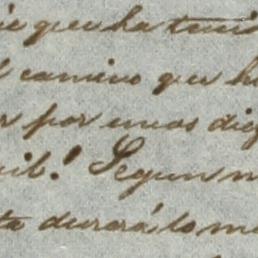 que ha teni
camino que h
r por unos diez
uil! Segun m
ta durará lo m